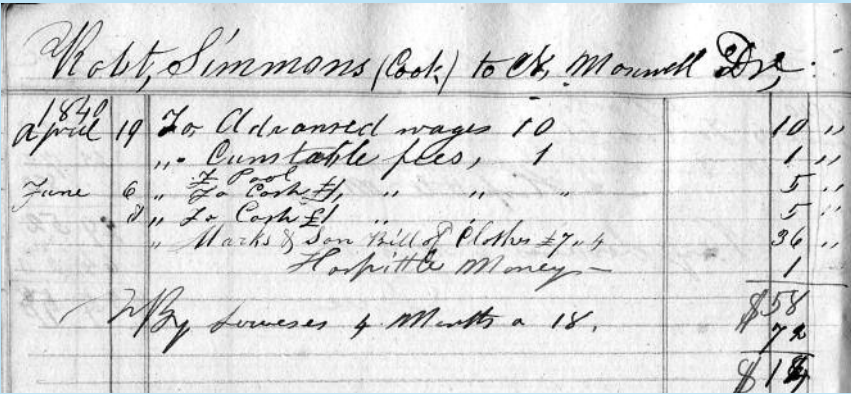 Robt, Simmons (Cook) to Ch, Maxwell Dr,
1840
April 19 To Advansed wages 10 10 ,,
,, Cunstable fees, 1 1 ,,
L Pool
June 6 ,, To Cash £1, ,, ,, ,, 5 ,,
8 ,, To Cash £1 ,, ,, 5 ,,
,, Marks & Son Bill of Clothes £7,,4 36 ,,
Hospittle Money 1
$58
By 4 Months a 18. 72
$14